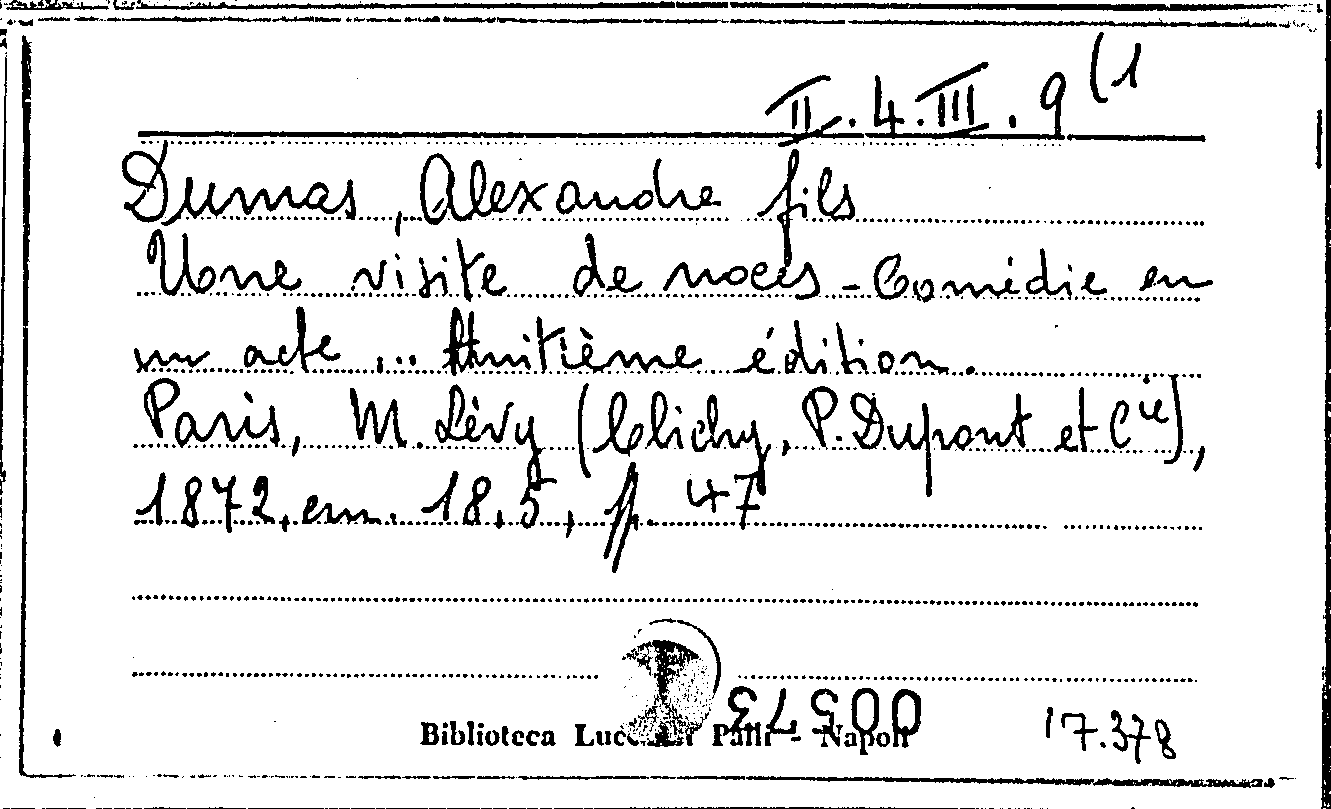 II.4.III.9(1
Dumas, Alexandre fils
Une visite de noces - Comédie en
un acte ... Huitième édition.
Paris, M. Lévy (Clichy, P. Dupont et Cie),
1872, cm. 18,5, pp. 47
00573
Biblioteca Lucchesi Palli - Napoli
17.378